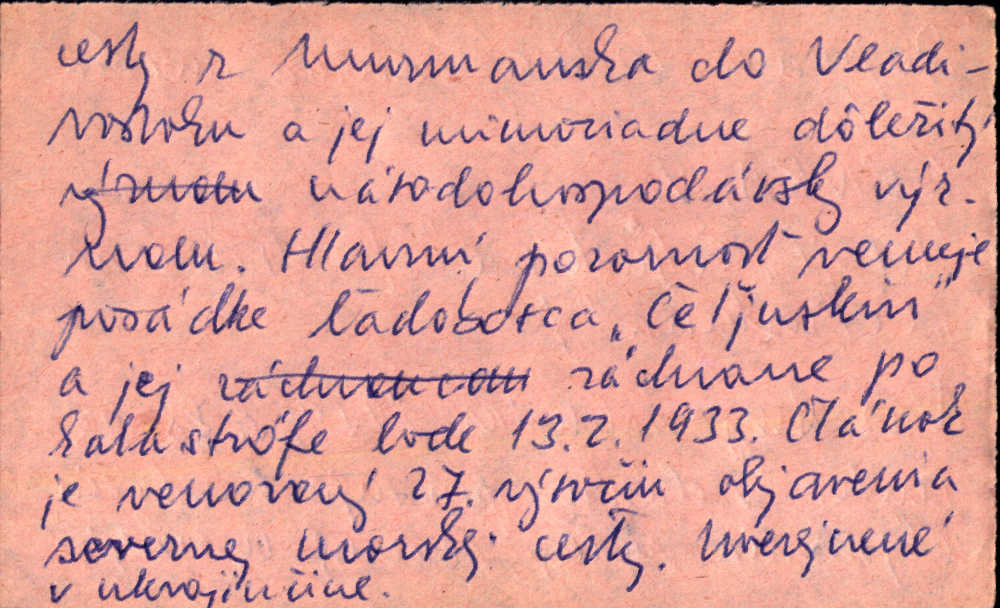 cesty z Murmanska do Vladi-
vostoku a jej mimoriadne dôležitý
význam národohospodársky výz-
nam. Hlavnú pozornosť venuje
posádke ľadoborca „Čeljuskin"
a jej záchrane po
katastrófe lode 13.2.1933. Článok
je venovaný 27. výročiu objavenia
severnej morskej cesty. Uverejnené
v ukrajinčine.